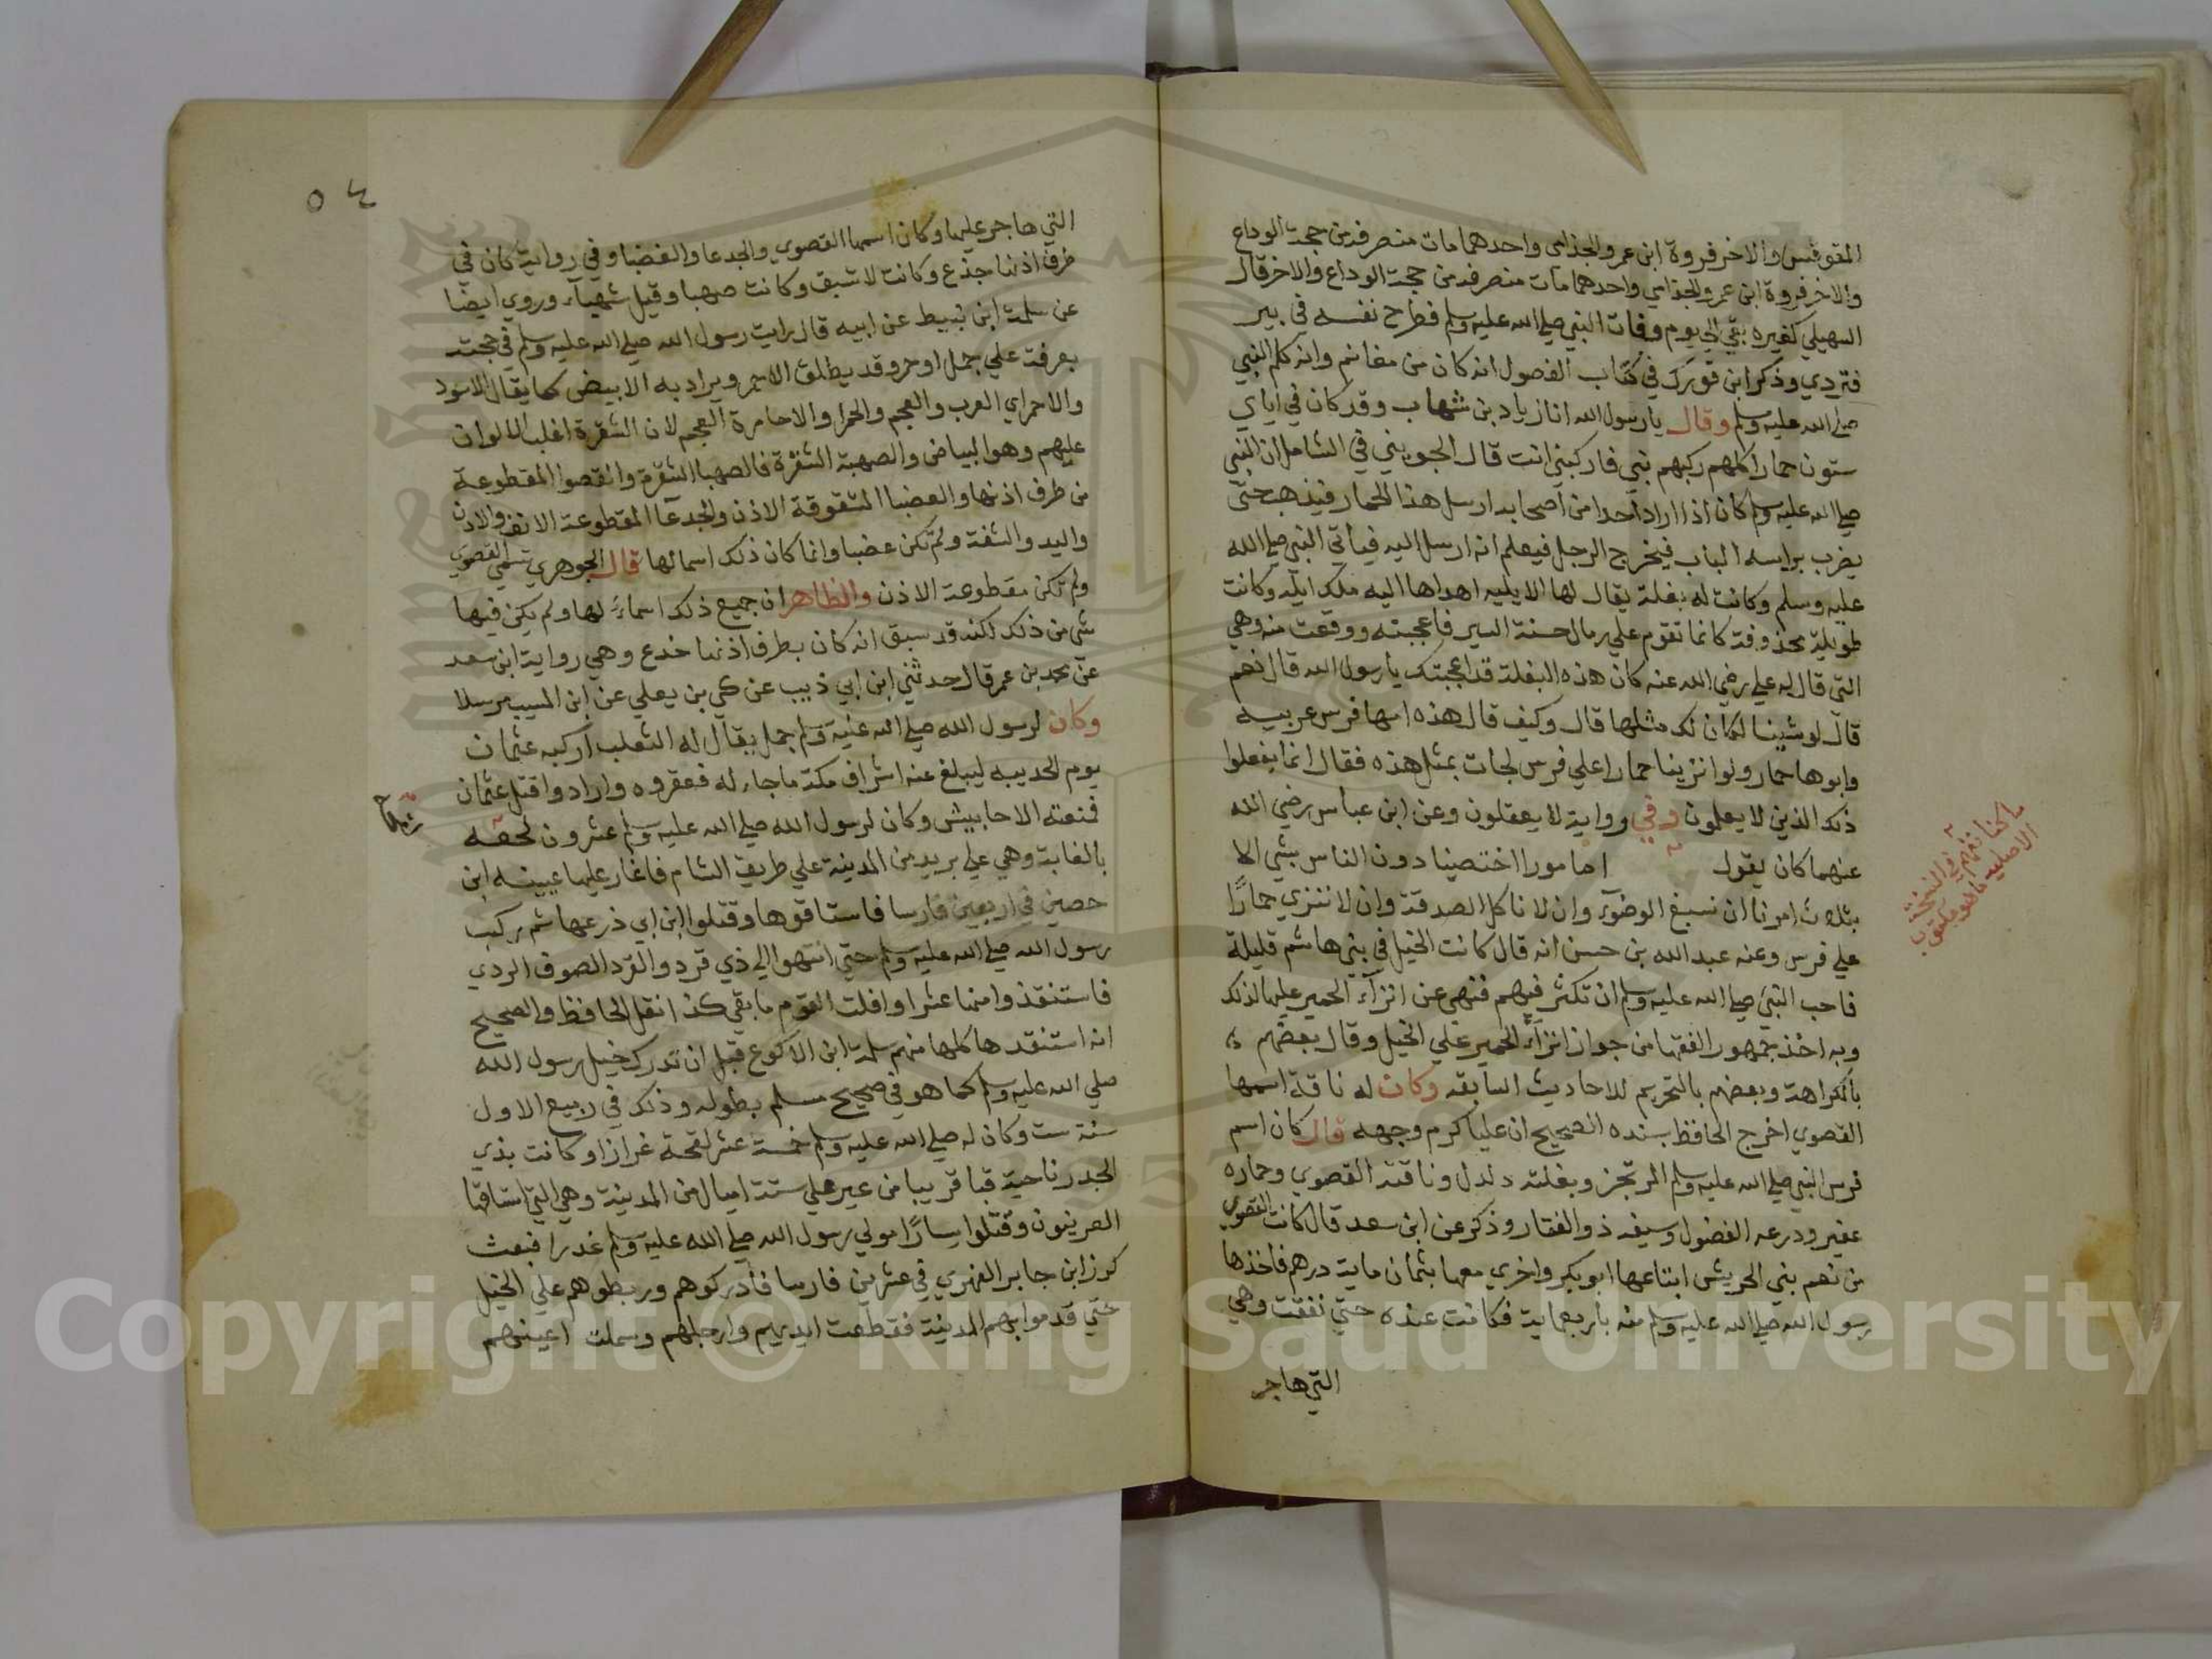 المقوقس والاخر فروة ابن عمرو الجذامي واحدهما مات منصرفه من حجة الوداع
والاخر فروة ابن عمرو الجذامي واحدهما مات منصرفه من حجة الوداع والاخر قال
السهيلي كغيره بقي الي يوم وفات النبي صلي الله عليه وسلم فطرح نفسه في بير
فتردي وذكر ابن فورك في كتاب الفصول انه كان من مغانم وانه كلم النبي
صلي الله عليه وسلم وقال يا رسول الله انا زياد بن شهاب وقد كان في اباي
ستون حمارا كلهم ركبهم نبي فاركبني انت قال الجويني في الشامل ان النبي
صلي الله عليه وسلم كان اذا اراد احدا من اصحابه ارسل هذا الحمار فيذهب حتي
يضرب براسه الباب فيخرج الرجل فيعلم انه ارسل اليه فياتي النبي صلي الله
عليه وسلم وكانت له بغلة يقال لها الايليه اهداها اليه ملك ايله وكانت
طويلة محذوفة كانما تقوم علي رمال حسنة السير فاعجبته ووقعت منه وهي
التي قال له علي رضي الله عنه كان هذه البغلة قد اعجبتك يا رسول الله قال نعم
قال لو شينا لكان لك مثلها قال وكيف قال هذه امها فرس عربيه
وابوها حمار ولو انزينا حمارا علي فرس لجات بمثل هذه فقال انما يفعلوا
ذلك الذين لا يعلمون وفي رواية لا يعقلون وعن ابن عباس رضي الله
عنهما كان يقول امامورا اختصينا دون الناس بشي الا
بثلاث امرنا ان نسبغ الوضوء وان لا ناكل الصدقة وان لا ننزي حمارًا
علي فرس وعنه عبد الله بن حسن انه قال كانت الخيل في بني هاشم قليلة
فاحب النبي صلي الله عليه وسلم ان تكثر فيهم فنهي عن انزاء الحمير عليها لذلك
وبه اخذ جمهور الفقها من جواز انزاء الحمير علي الخيل وقال بعضهم
بالكراهة وبعضهم بالتحريم للاحاديث السابقه وكان له ناقة اسمها
القصوي اخرج الحافظ بسنده الصحيح ان عليا كرم وجهه قال كان اسم
فرس النبي صلي الله عليه وسلم المرتجز وبغلته دلدل وناقته القصوي وحماره
عفير ودرعه الفضول وسيفه ذو الفقار وذكر عن ابن سعد قال كانت القصوي
من نعم بني الحريش ابتاعها ابو بكر واخري معها بثمان ماية درهم فاخذها
رسول الله صلي الله عليه وسلم منه باربعماية فكانت عنده حتي نفقت وهي
التي هاجر
في النسخة
الاصلية
٥٤
التي هاجر عليها وكان اسمها القصوي والجدعا والغضبا وفي رواية كان في
طرف اذنها جذع وكانت لا تسبق وكانت صهبا وقيل شهباء وروي ايضا
عن سلمة ابن نبيط عن ابيه قال رايت رسول الله صلي الله عليه وسلم في حجته
بعرفة علي جمل احمر وقد يطلق الاحمر ويراد به الابيض كما يقال الاسود
والاحمر اي العرب والعجم والحمرا والاحامرة العجم لان الشقرة اغلب الالوان
عليهم وهو البياض والصهبة الشقرة فالصهبا الشقرة والقصوا المقطوعة
من طرف اذنها والعضبا المشقوقة الاذن والجدعآ المقطوعة الانف والاذن
واليد والشفة ولم تكن عضبا وانما كان ذلك اسمائها قال الجوهري تسمي القصوي
ولم تكن مقطوعة الاذن والظاهر ان جميع ذلك اسماءً لها ولم يكن فيها
شي من ذلك لكنه قد سبق انه كان بطرف اذنها خدع وهي رواية ابن سعد
عن محمد بن عمر قال حدثني ابن ابي ذييب عن يحي بن يعلي عن ابن المسيب مرسلا
وكان لرسول الله صلي الله عليه وسلم جمل يقال له الثعلب اركبه عثمان
يوم الحديبه ليبلغ عنه اشراف مكة ما جاء له فعقروه وارادوا قتل عثمان
فمنعته الاحابيش وكان لرسول الله صلي الله عليه وسلم عشرون لحقه
بالغابة وهي علي بريد من المدينة علي طريق الشام فاغار عليها عيينه ابن
حصين في اربعين فارسا فاستاقوها وقتلوا ابن ابي ذر عها ثم ركب
رسول الله صلي الله عليه وسلم حتي انتهوا الي ذي قرد والقرد الصوف الردي
فاستنقذوا منها عشرا وافلت القوم ما بقي كذا نقل الحافظ والصحيح
انه استنقدها كلها منهم سلمة ابن الاكوع قبل ان تدرك خيل رسول الله
صلي الله عليه وسلم كما هو في صحيح مسلم بطوله وذلك في ربيع الاول
سنة ست وكان له صلي الله عليه وسلم خمسة عشر لقحة غرازا وكانت بذي
الجدر ناحية قبا قريبا من عير علي ستة اميال من المدينة وهي التي استاقها
العرينون وقتلوا يسارًا مولي رسول الله صلي الله عليه وسلم غدرا فبعث
كرز ابن جابر الفهري في عشرين فارسا فأدركوهم وربطوهم علي الخيل
حتي قدموا بهم المدينة فقطعت ايديهم وارجلهم وسملت اعينهم
Copyright © King Saud University